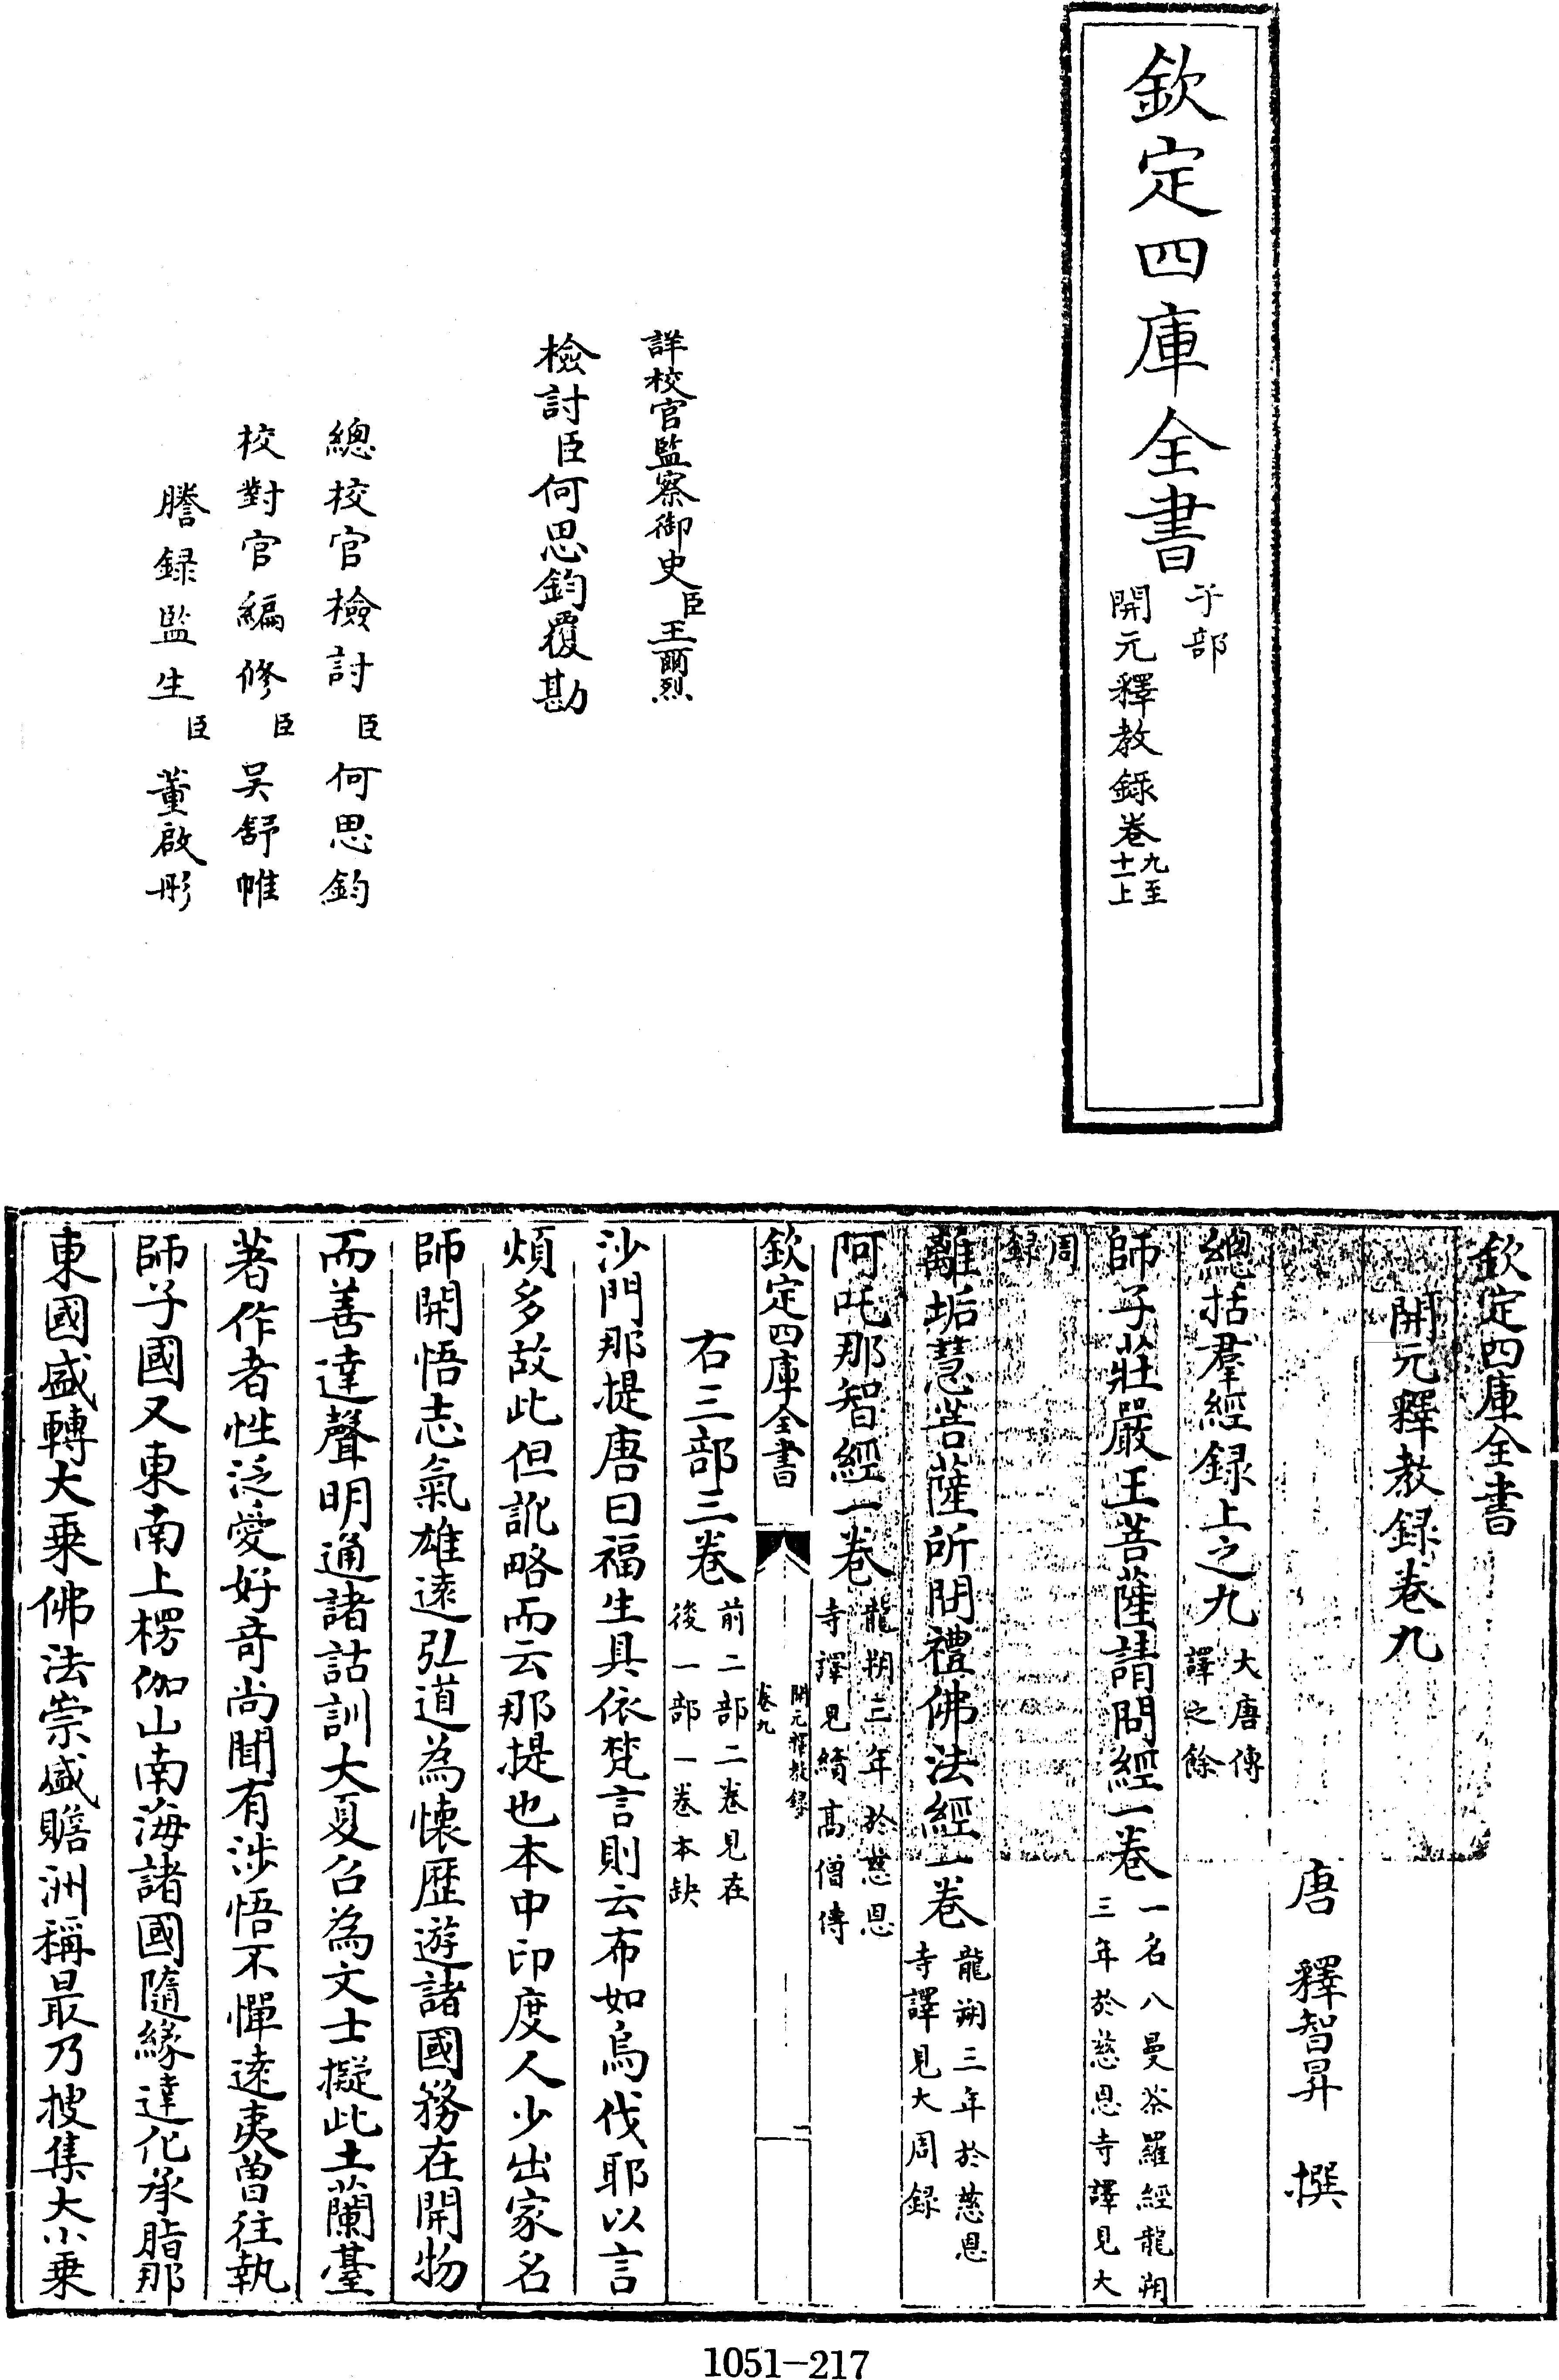 欽定四庫全書
子部
開元釋教錄卷九至十一上
詳校官監察御史臣王爾烈
檢討臣何思鈞覆勘
總校官檢討臣何思鈞
校對官編修臣吳舒帷
謄録監生臣董啟彤
欽定四庫全書
開元釋教録卷九
唐 釋智昇 撰
總括羣經録上之九大唐傳譯之餘
師子莊嚴王菩薩請問經一卷一名八曼荼羅經龍朔三年於慈恩寺譯見大
周録
離垢慧菩薩所問禮佛法經一卷龍朔三年於慈恩寺譯見大周録
阿吒那智經一卷龍朔三年於慈恩寺譯見續高僧傳
欽定四庫全書
開元釋教録
卷九
一
右三部三卷前二部二卷見在後一部一卷本缺
沙門那提唐曰福生具依梵言則云布如烏伐耶以言
煩多故此但訛略而云那提也本中印度人少出家名
師開悟志氣雄遠弘道為懷歷遊諸國務在開物
而善達聲明通諸詁訓大夏召為文士擬此土蘭臺
著作者性泛愛好奇尚聞有涉悟不憚遠夷曾往執
師子國又東南上楞伽山南海諸國隨緣達化承脂那
東國盛轉大乗佛法崇盛贍洲稱最乃搜集大小乗
1051-217